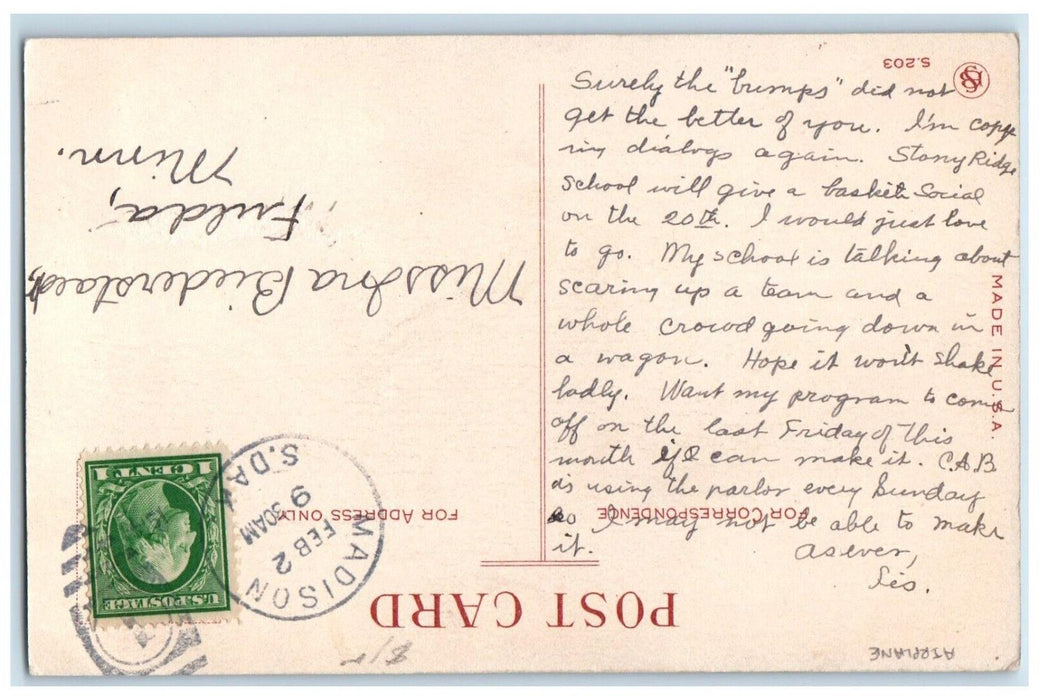 Surely the "bumps" did not
get the better of you. I'm copy
ing dialogs again. Stony Ridge
School will give a basket Social
on the 20th. I would just love
to go. My school is talking about
scaring up a team and a
whole crowd going down in
a wagon. Hope it won't shake
badly. Want my program to come
off on the last Friday of this
month if I can make it. C.A.B.
is using the parlor every Sunday
so I may not be able to make
it.
As ever,
Sis.
Miss Ina Biederstaedt,
Fulda,
Minn.
POST CARD
FOR CORRESPONDENCE
FOR ADDRESS ONLY
MADE IN U.S.A.
S.203
MADISON
S.DAK.
FEB 2
930AM
9
U.S. POSTAGE
1 CENT 1
AIRPLANE